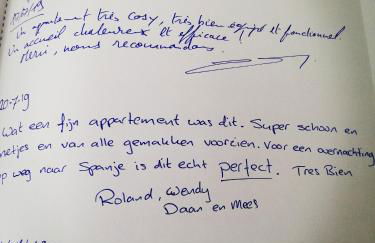 Un appartement très cosy, très bien équipé et fonctionnel.
Un accueil chaleureux et efficace!
Merci, nous recommandons.
20-7-19
Wat een fijn appartement was dit. Super schoon en
netjes en van alle gemakken voorzien. Voor een overnachting
op weg naar Spanje is dit echt perfect. Tres Bien
Roland, Wendy
Daan en Mees